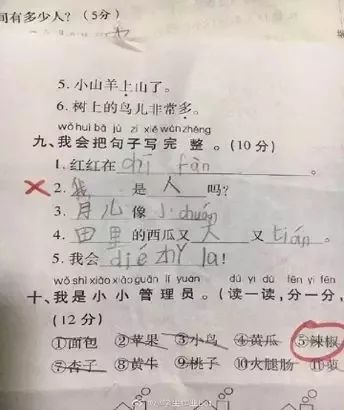 间有多少人？（5分）
5. 小山羊上山了。
6. 树上的鸟儿非常多。
wǒ huì bǎ jù zi xiě wán zhěng
九、我会把句子写完整。（10分）
1. 红红在 chī fàn 。
2. 我 是 人 吗？
3. 月儿 像 小 chuán
4. 田里 的西瓜又 大 又 tián 。
5. 我会 dié zhǐ la！
wǒ shì xiǎo xiǎo guǎn lǐ yuán dú yi dú fēn yi fēn
十、我是小小管理员。（读一读，分一分，
（12分）
①面包 ②苹果 ③小鸟 ④黄瓜 ⑤辣椒
⑦杏子 ⑧黄牛 ⑨桃子 ⑩火腿肠 ⑪菠